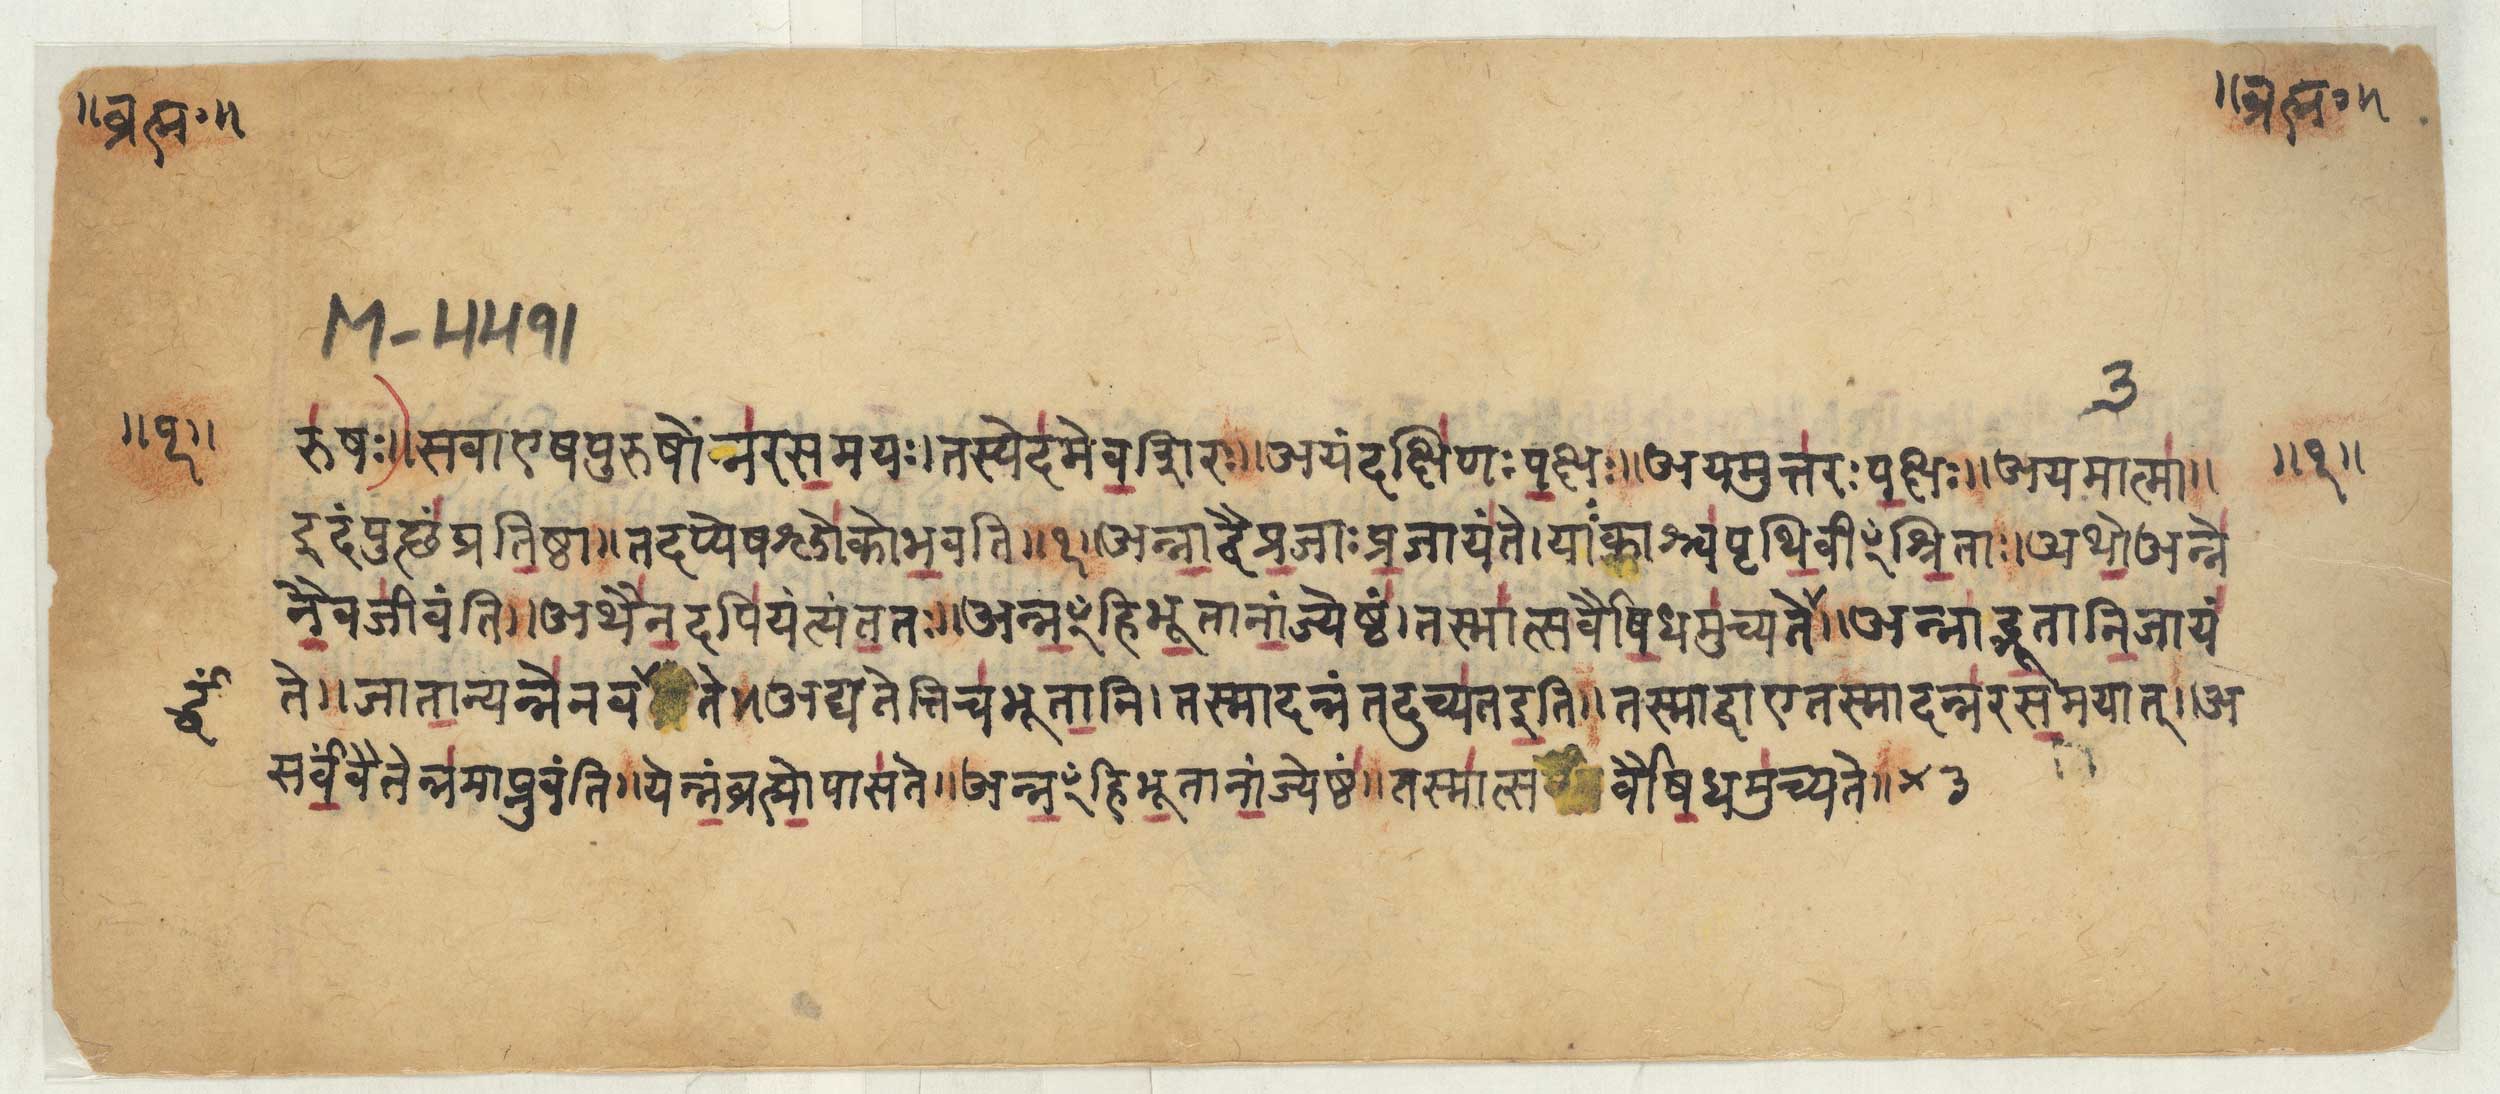 ॥ब्रह्म॰॥ ॥ब्रह्म॰॥
M-4491
3
॥१॥ रुषः॥सवाएषपुरुषोन्नरसमयः।तस्येदमेवशिरः॥अयंदक्षिणःपक्षः॥अयमुत्तरःपक्षः॥अयमात्मा॥ ॥१॥
इदंपुच्छंप्रतिष्ठा॥तदप्येषश्लोकोभवति॥१॥अन्नाद्वैप्रजाःप्रजायंते।याःकाश्चपृथिवीꣳश्रिताः।अथोअन्ने
नैवजीवंति॥अथैनदपियंत्यंततः॥अन्नꣳहिभूतानांज्येष्ठं।तस्मात्सर्वौषधमुच्यते॥अन्नाद्भूतानिजायं
र्द्धं ते॥जातान्यन्नेनव ते॥अद्यतेत्तिचभूतानि।तस्मादन्नंतदुच्यतइति॥तस्माद्वाएतस्मादन्नरसमयात्॥अ
सर्वंवैतेन्नमाप्नुवंति॥येन्नंब्रह्मोपासते॥अन्नꣳहिभूतानांज्येष्ठं॥तस्मात्स र्वौषधमुच्यते॥× ३